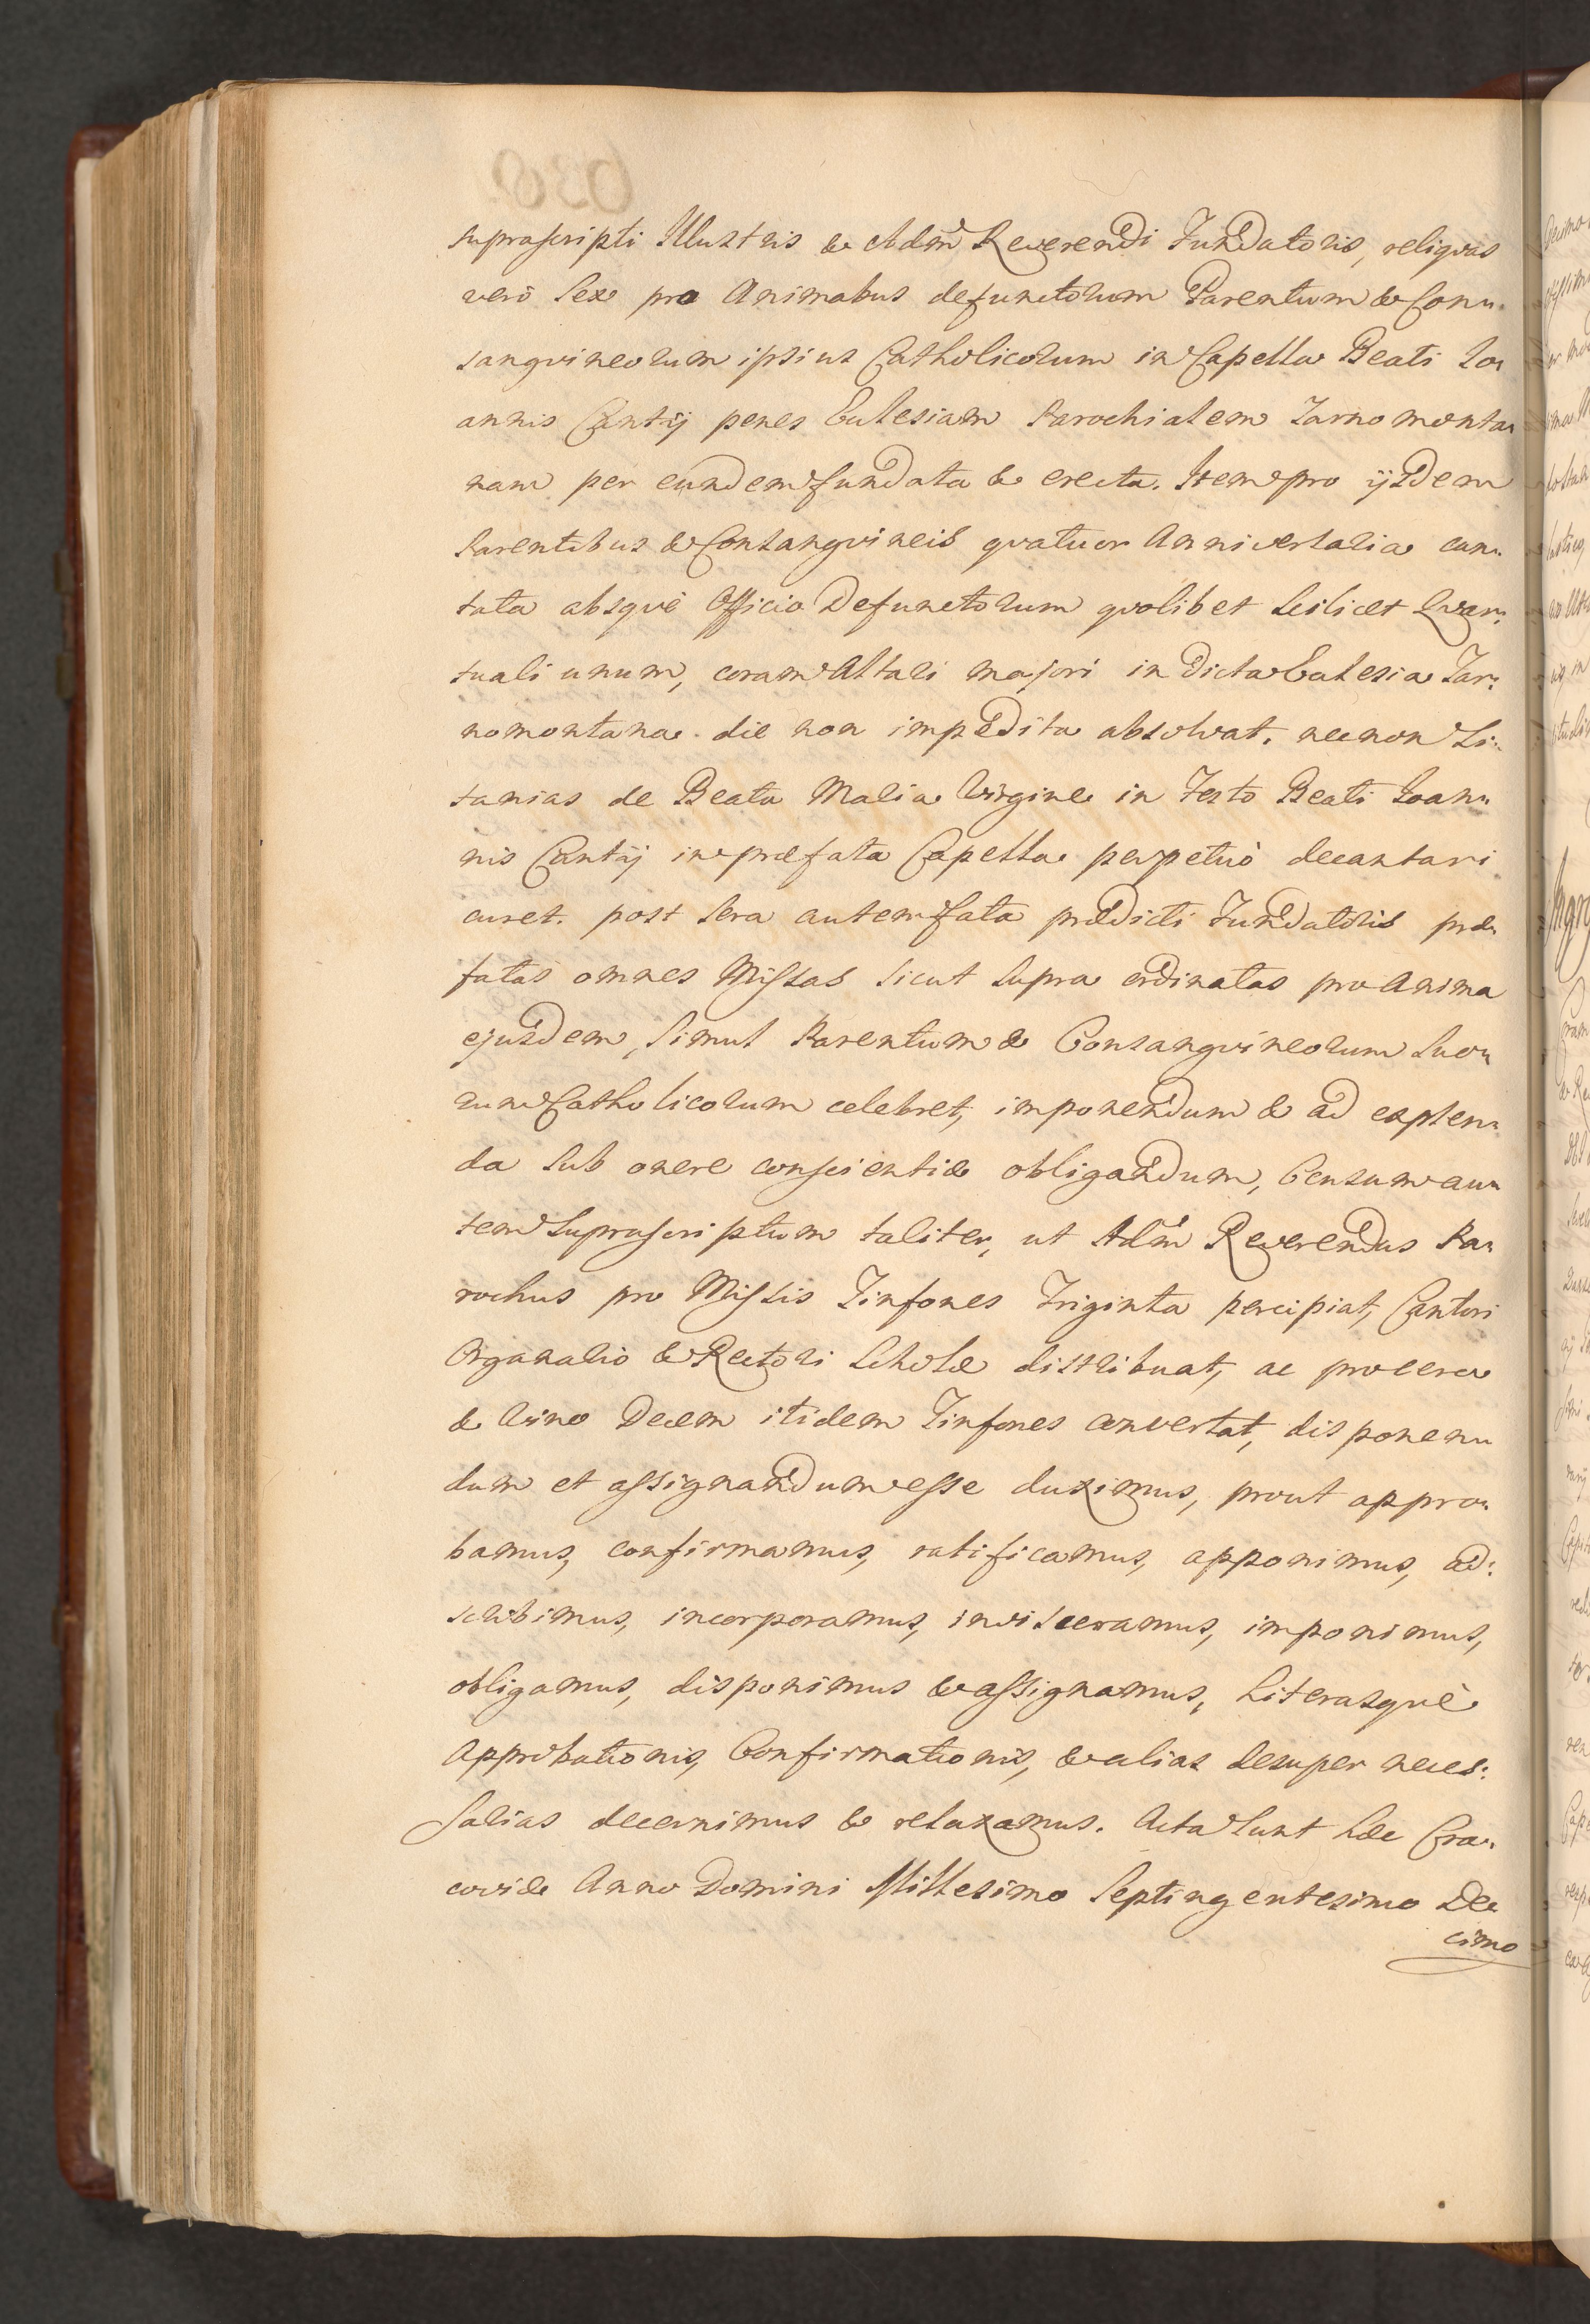 suprascripti Illustris & Adm Reverendi Fundatoris, reliquas
verò Sex pro Animabus defunctorum Parentum & Con„
sangvineorum ipsius Catholicorum in Capella Beati Io„
annis Cantij penes Ecclesiam Parochialem Tarnomonta„
nam per eundem fundata & erecta. Item pro ijsdem
Parentibus & Consangvineis qvatuor Anniversaria can„
tata absqvè Officio Defunctorum qvolibet Scilicet Qvar„
tuali unum, coram Altari majori in dicta Ecclesia Tar„
nomontana die non impedita absolvat, necnon Li„
tanias de Beata Maria Virgine in Festo Beati Ioan„
nis Cantij in præfata Capella perpetuò decantari
curet. post Sera autem fata prædicti Fundatoris præ„
fatas omnes Missas sicut supra ordinatas pro Anima
ejusdem, simul Parentum & Consangvineorum Suo„
rum Catholicorum celebret, imponendum & ad explen„
da sub onere conscientiæ obligandum, Censum au„
tem Suprascriptum taliter, ut Adm Reverendus Pa„
rochus pro Missis Tinfones Triginta percipiat, Cantori
Organario & Rectori Scholæ distribuat, ac pro cera
& vino Decem itidem Tinfones convertat, disponen„
dum et assignandum esse duximus, prout appro„
bamus, confirmamus, ratificamus, apponimus, ad„
scribimus, incorporamus, invisceramus, imponimus,
obligamus, disponimus & assignamus, Literasqvè
Approbationis, Confirmationis, & alias desuper neces„
sarias decernimus & relaxamus. Acta sunt hæc Cra„
coviæ Anno Domini Millesimo Septingentesimo De„
cimo